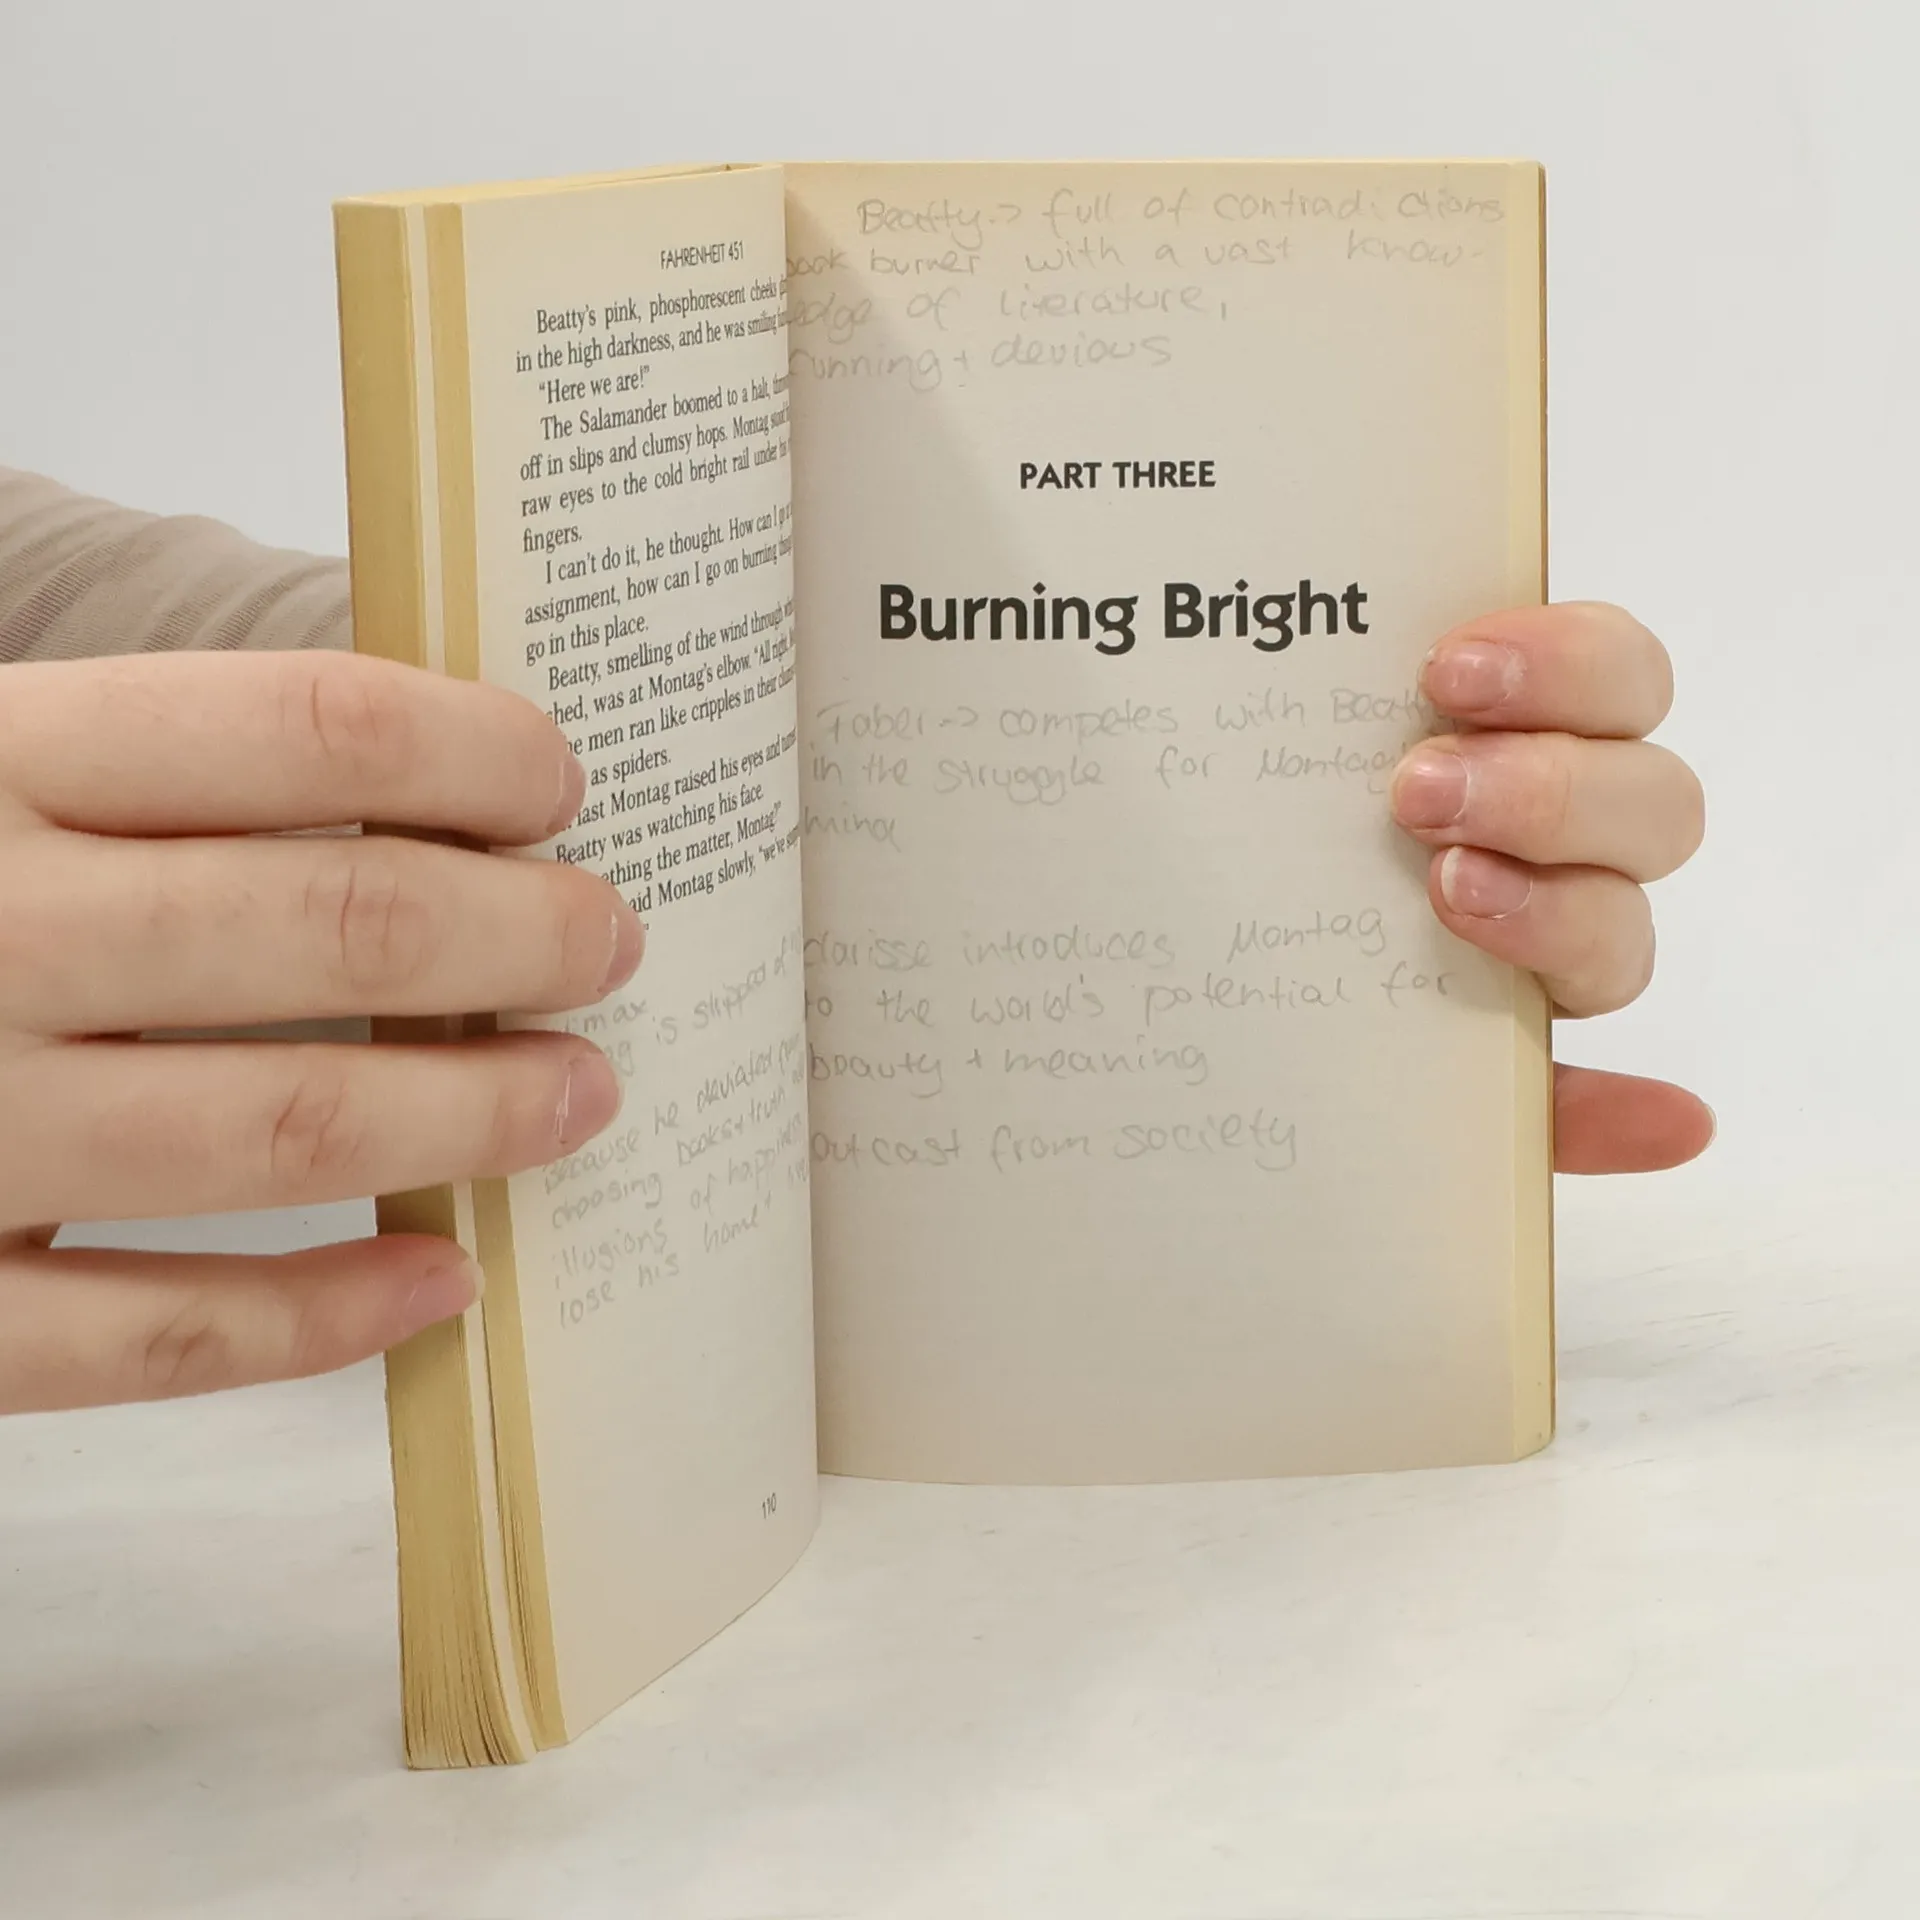 FAHRENHEIT 451
Beatty's pink, phosphorescent cheeks
in the high darkness, and he was smiling
"Here we are!"
The Salamander boomed to a halt,
off in slips and clumsy hops. Montag
raw eyes to the cold bright rail under
fingers.
I can't do it, he thought. How can I
assignment, how can I go on burning
go in this place.
Beatty, smelling of the wind through
shed, was at Montag's elbow. "All right,
men ran like cripples in their
as spiders.
last Montag raised his eyes and
Beatty was watching his face.
the matter, Montag?"
said Montag slowly, "we've
is stripped of
because he deviated
choosing books + truth
illusions of happiness
lose his home +
110
Beatty -> full of contradictions
book burner with a vast know-
ledge of literature,
cunning + devious
PART THREE
Burning Bright
Faber -> competes with Beatty
in the struggle for Montag
mind
Clarisse introduces Montag
to the world's potential for
beauty + meaning
outcast from society